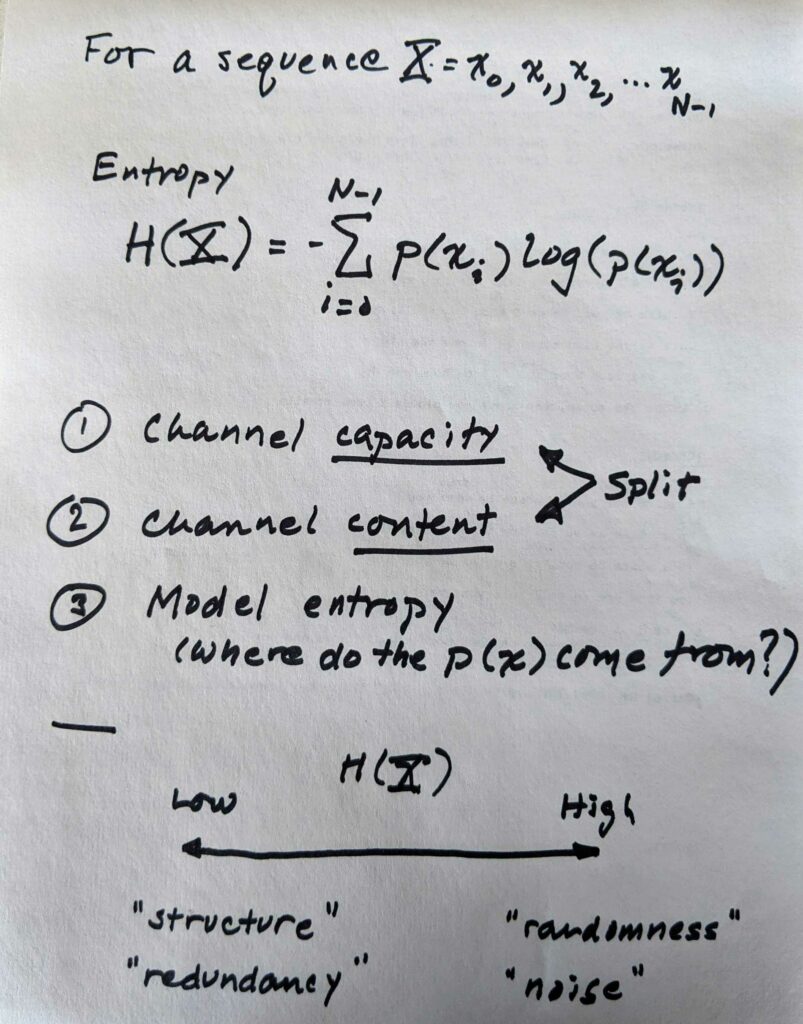 For a sequence X = x₀, x₁, x₂, ... x_{N-1}
Entropy
H(X) = - ∑_{i=0}^{N-1} p(x_i) log(p(x_i))
① Channel capacity
② Channel content
Split
③ Model entropy
(where do the p(x) come from?)
H(X)
Low High
"structure" "randomness"
"redundancy" "noise"